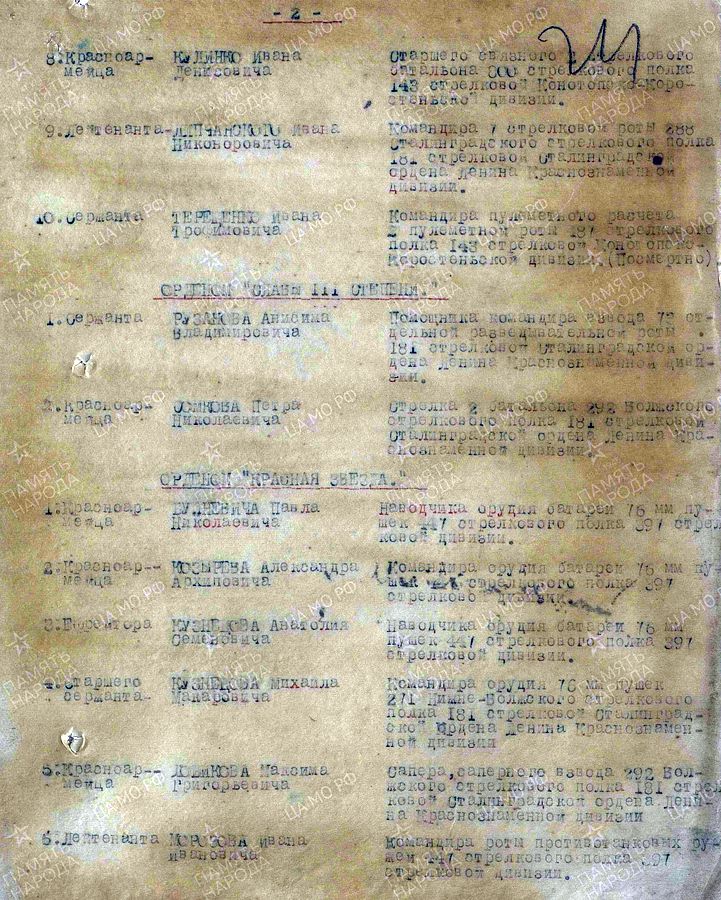 - 2 -
8. Красноар- КУЛИНКО Ивана Старшего связного 2 стрелкового
мейца Денисовича батальона 800 стрелкового полка
143 стрелковой Конотопско-Коро-
стеньской дивизии.
9. Лейтенанта- Ивана Командира 7 стрелковой роты 288
Никоноровича Сталинградского стрелкового полка
181 стрелковой Сталинградской
ордена Ленина Краснознаменной
дивизии.
10. Сержанта ТЕРЕЩЕНКО Ивана Командира пулеметного расчета
Трофимовича 2 пулеметной роты 187 стрелкового
полка 143 стрелковой Конотопско-
Коростеньской дивизии. (Посмертно)
ОРДЕНОМ "СЛАВЫ III СТЕПЕНИ."
1. Сержанта РУЗАНОВА Анисима Помощника командира взвода 73 от-
Владимировича дельной разведывательной роты
181 стрелковой Сталинградской ор-
дена Ленина Краснознаменной диви-
зии.
2. Красноар- Петра Стрелка 2 батальона 292 Волжского
мейца Николаевича стрелкового полка 181 стрелковой
Сталинградской ордена Ленина Кра-
снознаменной дивизии.
ОРДЕНОМ "КРАСНАЯ ЗВЕЗДА."
1. Красноар- Павла Наводчика орудия батареи 76 мм пу-
мейца Николаевича шек 447 стрелкового полка 397 стрел
ковой дивизии.
2. Красноар-- КОЗЫРЕВА Александра Командира орудия батареи 76 мм пу-
мейца Архиповича шек 447 стрелкового полка 397
стрелково дивизии.
3. Ефрейтора КУЗНЕЦОВА Анатолия Наводчика орудия батареи 76 мм
Семеновича пушек 447 стрелкового полка 397
стрелковой дивизии.
4. Старшего КУЗНЕЦОВА Михаила Командира орудия 76 мм пушек
сержанта- Макаровича 271 Нижне-Волжского стрелкового
полка 181 стрелковой Сталинград-
ской ордена Ленина Краснознамен-
ной дивизии
5. Красноар-- Максима Сапера, саперного взвода 292 Вол-
мейца Григорьевича жского стрелкового полка 181 стрел
ковой Сталинградской ордена Лени-
на Краснознаменной дивизии
6. Лейтенанта МОРОЗОВА Ивана Командира роты противотанковых ру-
Ивановича жей 447 стрелкового полка 397
стрелковой дивизии.
ПАМЯТЬ НАРОДА
ЦАМО.РФ